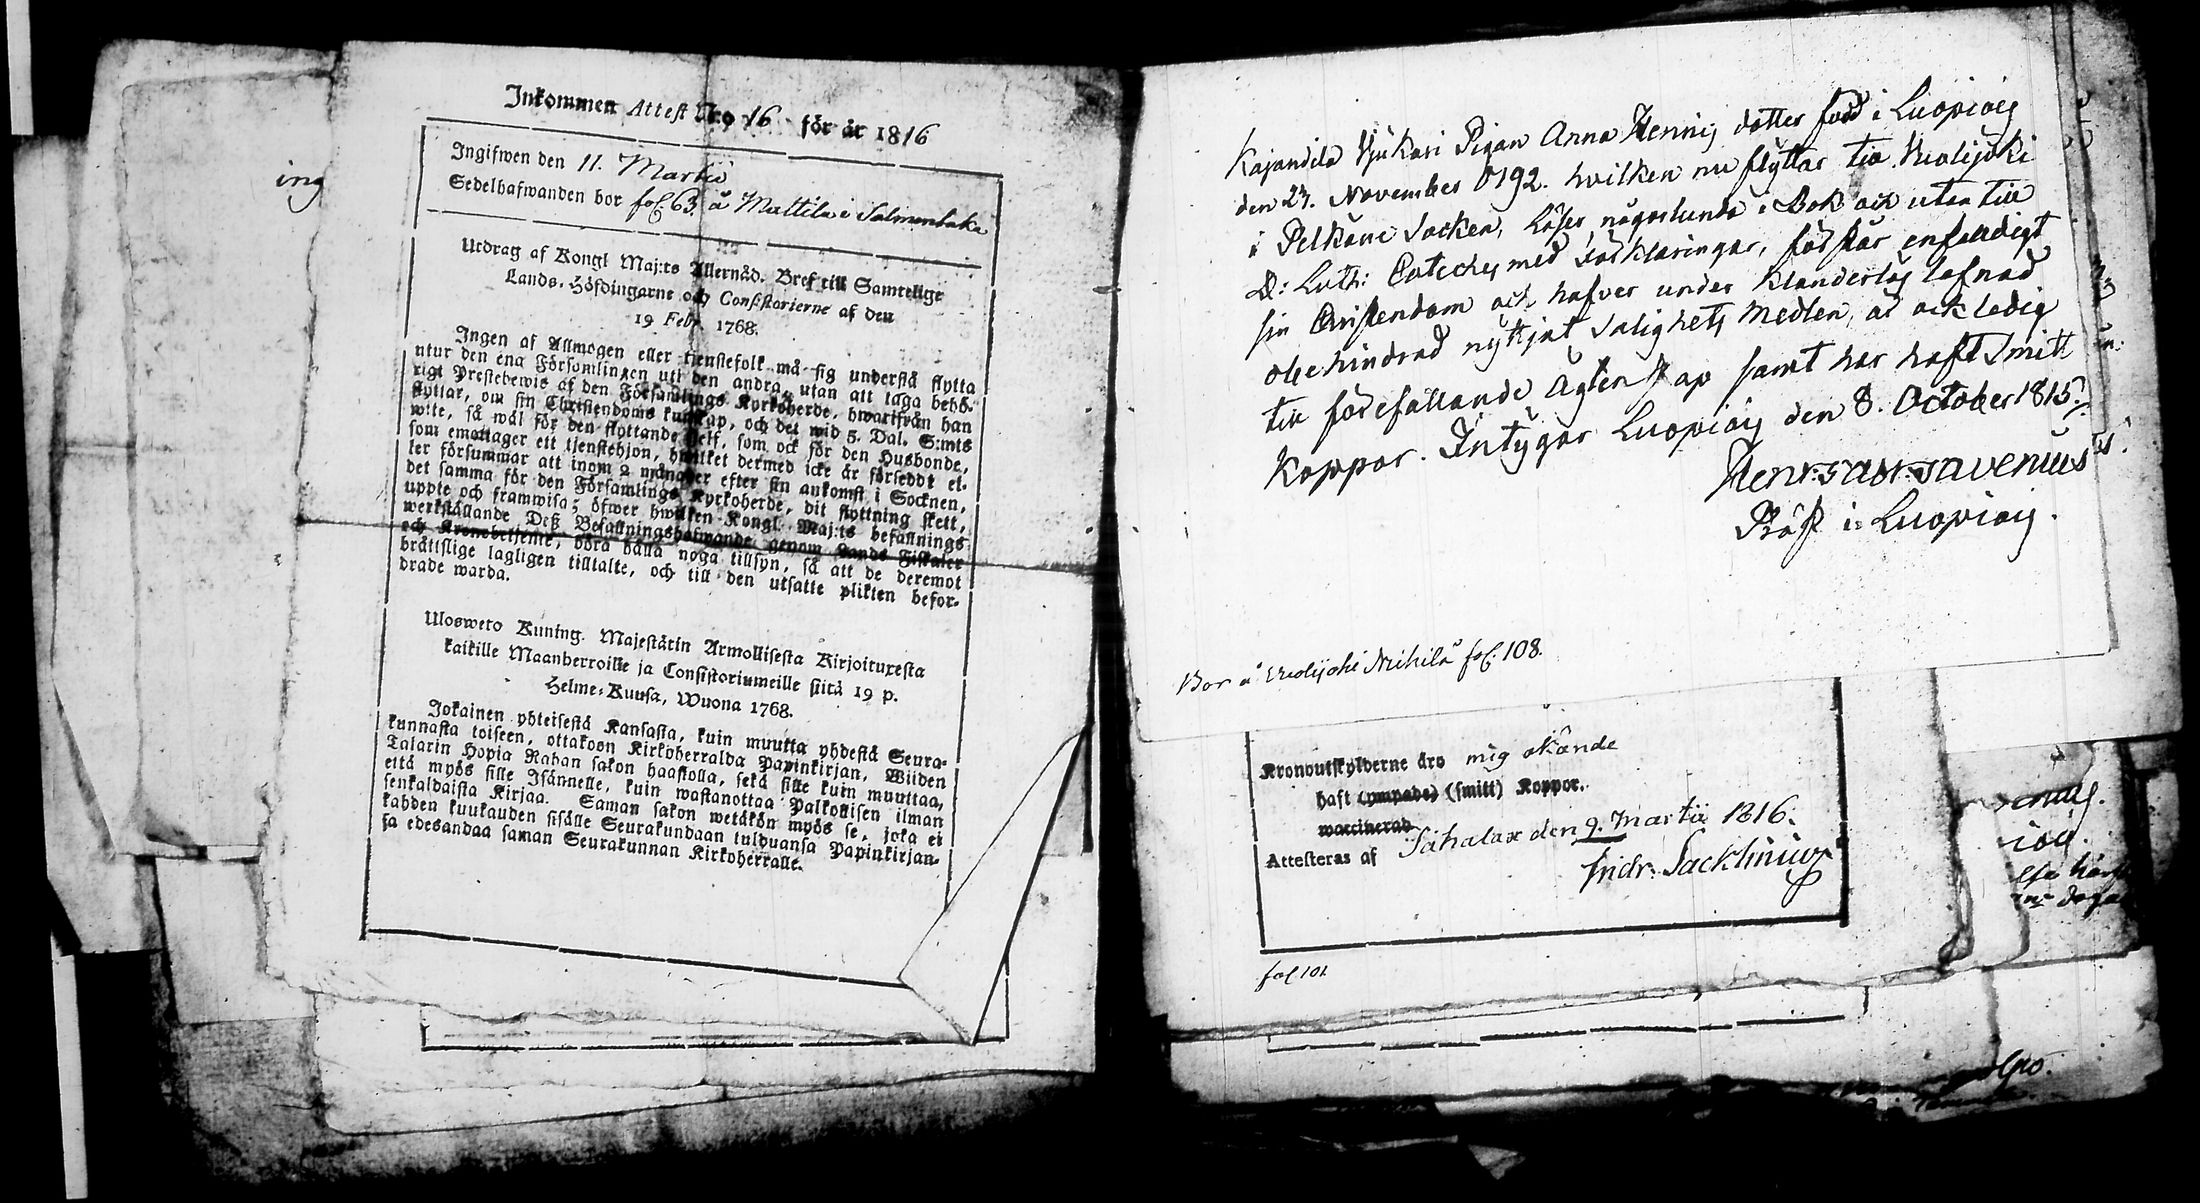 Inkommen Attest N:o 16 för år 1816
Ingifwen den 11. Martii
Sedelhafwanden bor fol: 63. å Mattila i Salmentaka
Utdrag af Kongl Maj:ts Allernåd. Bref till Samtelige
Lands-Höfdingarne och Consistorierne af den
19 Febr. 1768.
Ingen af Allmogen eller tienstefolk må sig understå flytta
utur den ena Församlingen uti den andra, utan att taga behö-
rigt Prestebewis af den Församlings Kyrkoherde, hwarifrån han
flyttar, om sin Christendoms kunskap, och det wid 5. Dal. S:mts
wite, så wäl för den flyttande sjelf, som ock för den Husbonde,
som emottager ett tjenstehjon, hwilket dermed icke är förseddt el-
ler försummar att inom 2 månader efter sin ankomst i Socknen,
det samma för den Församlings Kyrkoherde, dit flyttning skett,
uppte och framwisa; öfwer hwilken Kongl. Maj:ts befallnings
werkställande Deß Befallningshafwande genom Lands Fiskaler
och Kronobetjente, böra hålla noga tillsyn, så att de deremot
bråttslige lagligen tilltalte, och till den utsatte plikten befor-
drade warda.
Ulosweto Kuning. Majestätin Armollisesta Kirjoituxesta
kaikille Maanherroille ja Consistoriumeille siitä 19 p.
Helme-Kuusa, Wuona 1768.
Jokainen yhteisestä Kansasta, kuin muutta yhdestä Seura-
kunnasta toiseen, ottakoon Kirkoherralda Papinkirjan, Wiiden
Talarin Hopia Rahan sakon haastolla, sekä sille kuin muuttaa,
että myös sille Isännelle, kuin wastanottaa Palkollisen ilman
senkaldaista Kirjaa. Saman sakon wetäkön myös se, joka ei
kahden kuukauden sisälle Seurakundaan tulduansa Papinkirjan-
sa edesandaa saman Seurakunnan Kirkoherralle.
ing
Kajandila Ujukari Pigan Anna Henrics dotter född i Luopiois
den 23. November 1792. hvilken nu flyttar till Kuolijoki
i Pelkäne Socken, läser någorlunda i Bok och utan till
D: Luth: Cateches med Förklaringar, förstår enfaldigt
sin Christendom och hafver under klanderlös lefnad
obehindrad nyttjat Salighets Medlen, är ock ledig
till förefallande ägtenskap samt har haft Smitt
koppor. Intygar Luopiois den 8. October 1815.
Henr: Gabr: Gavenius
Pröst i Luopiois.
Bor å Kuolijoki fol: 108.
Kronoutskylderne äro mig okände
haft (ympade) (smitt) Koppor.
waccinerad
Attesteras af Sahalax den 9. Martii 1816.
Fridr: Sacklinius
fol. 101